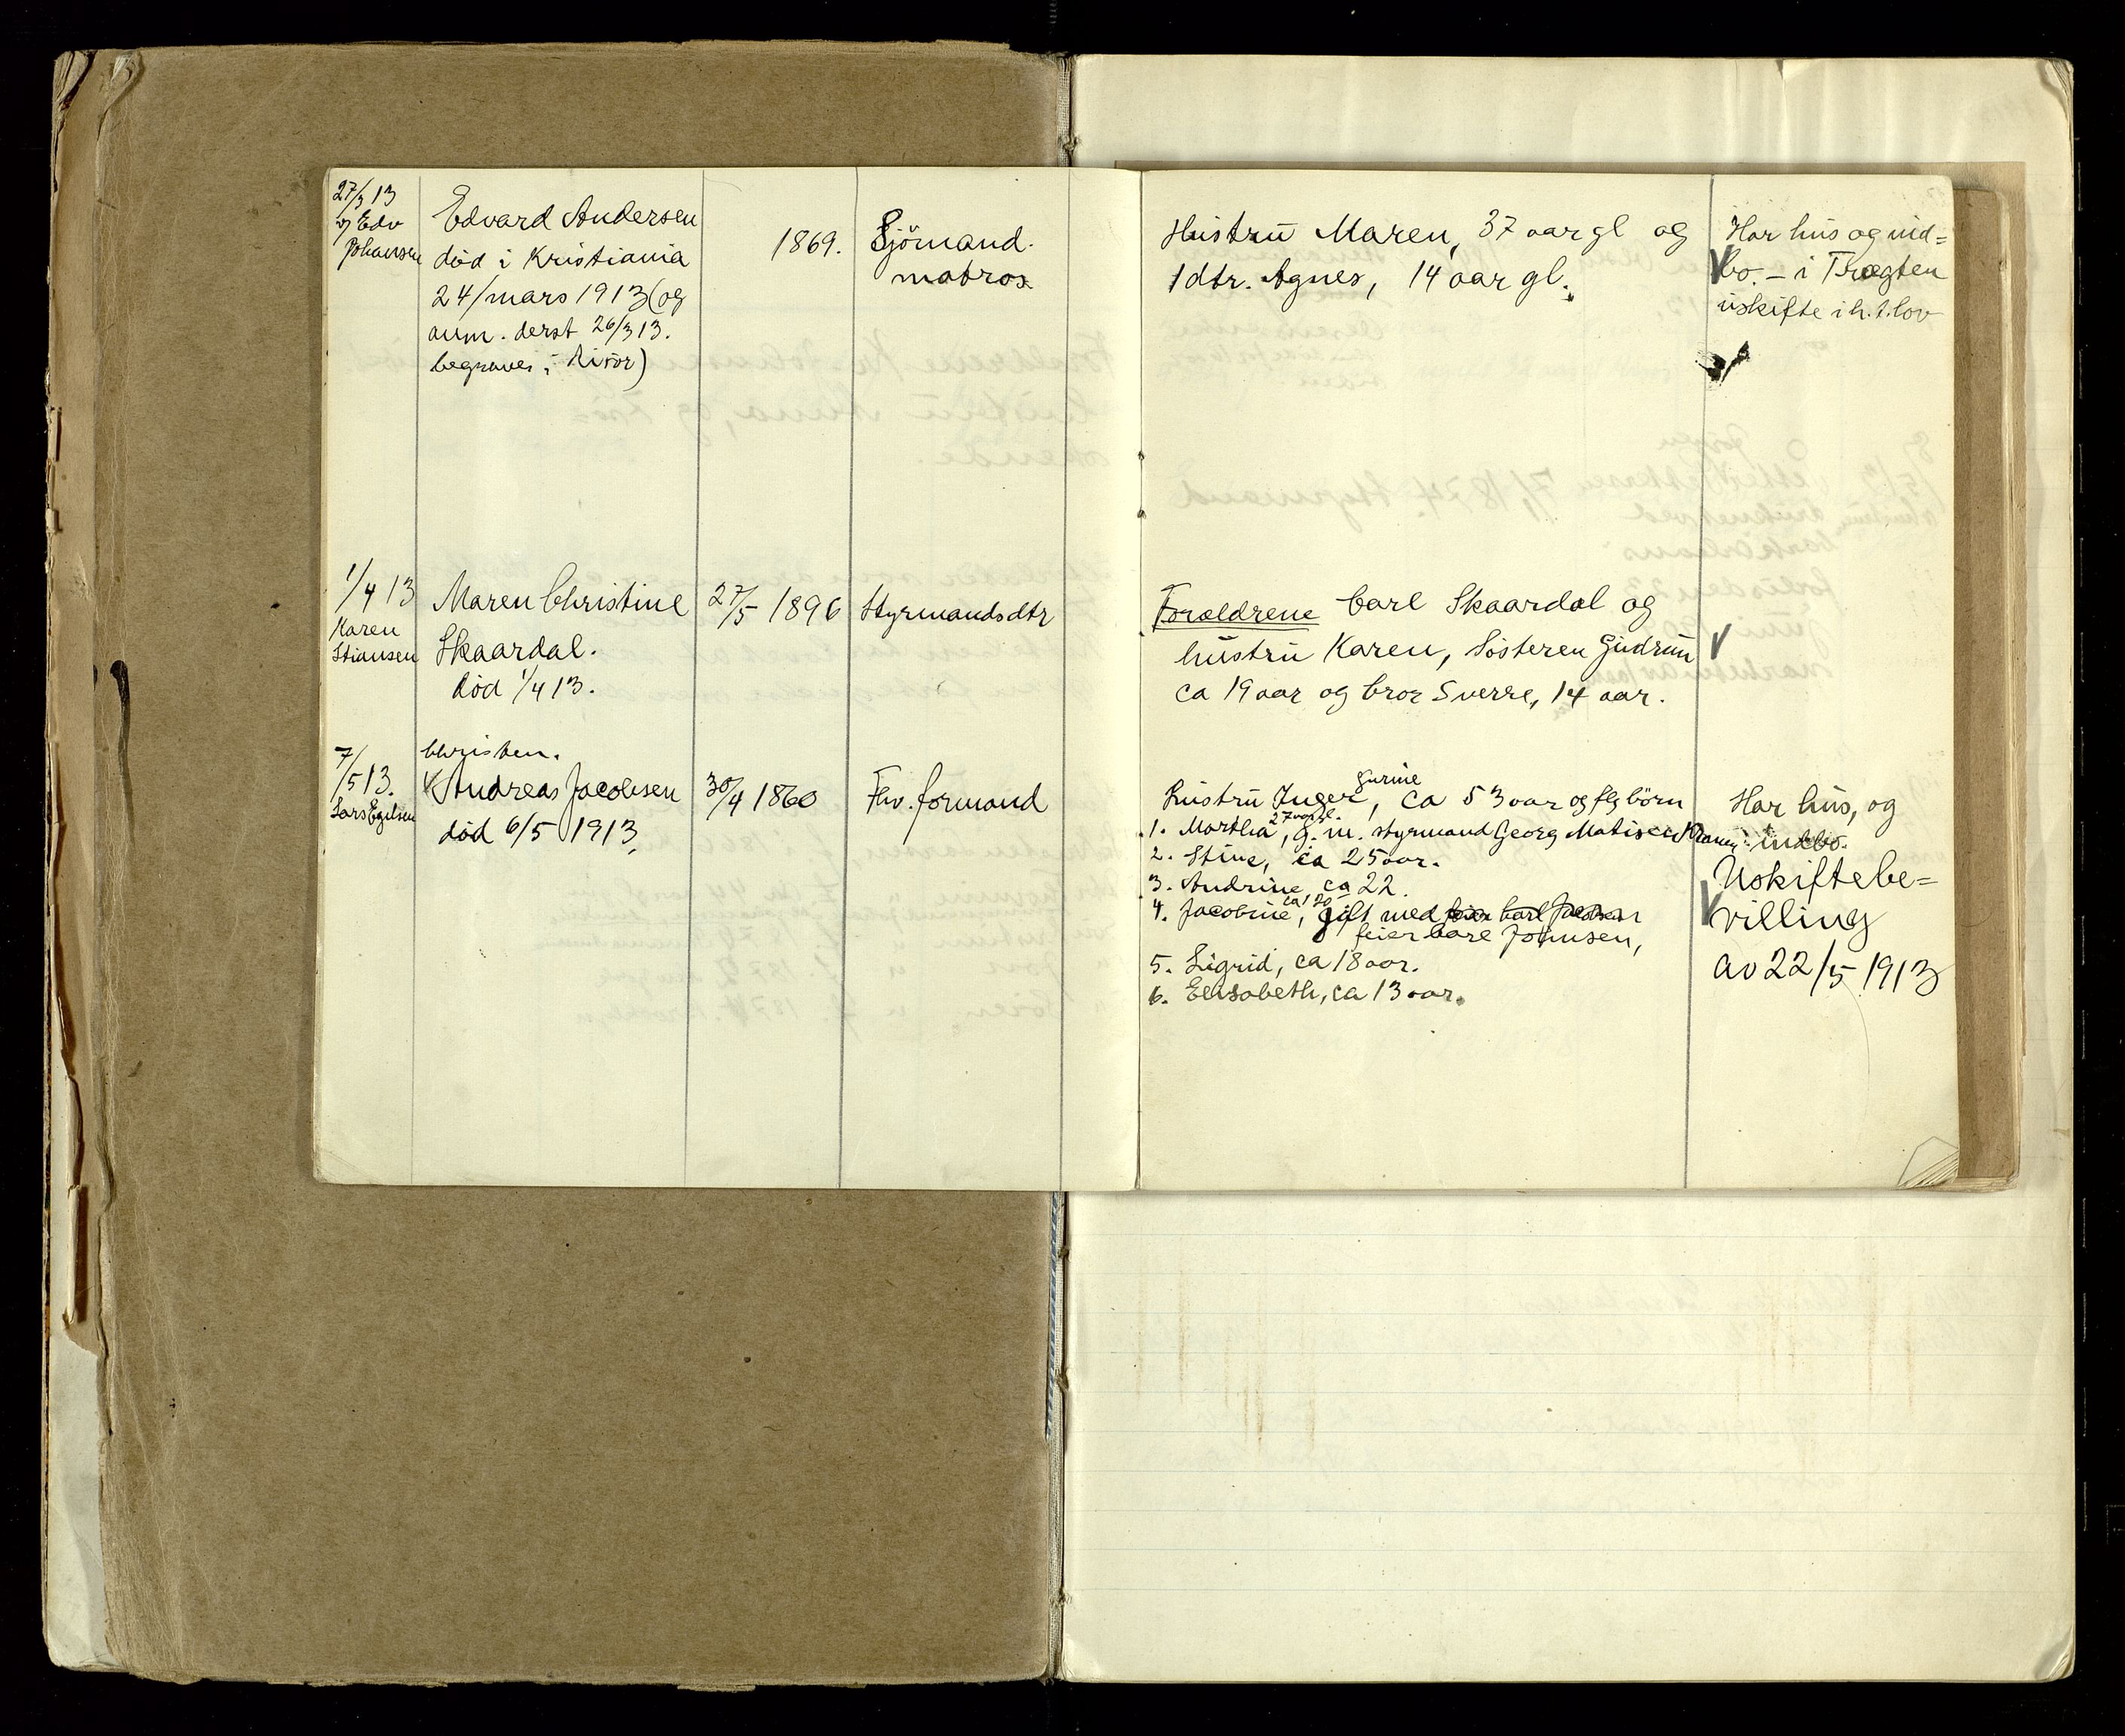 27/3 13
v/ Edv
Johansen
Edvard Andersen
död i Kristiania
24/mars 1913 (og
anm. derst 26/3 13.
begraves i Risör)
1869.
Sjömand.
matros
Hustru Maren, 37 aar gl og
1 dtr. Agnes, 14 aar gl.
Har hus og ind=
bo. - i Trægten
uskifte i h. t. lov
1/4 13
Karen
Stiansen
Maren Christine
Skaardal.
död 1/4 13.
27/5 1896
Styrmandsdtr
Forældrene Carl Skaardal og
hustru Karen, Sösteren Gudrun
ca 19 aar og bror Sverre, 14 aar.
7/5 13.
Lars Egilsen
Christen.
Andreas Jacobsen
död 6/5 1913.
30/4 1860
Fhv. formand
Hustru Inger Gurine, ca 53 aar og flg börn
1. Martha 27 aar gl., g. m. styrmand Georg Matisen
2. Stine, ca 25 aar.
3. Andrine, ca 22.
4. Jacobine, ca 20 gift med feier Carl Jacobsen
feier Carl Johnsen,
5. Sigrid, ca 18 aar.
6. Elisabeth, ca 13 aar.
Har hus, og
indbo.
Uskiftebe=
villing
av 22/5 1913